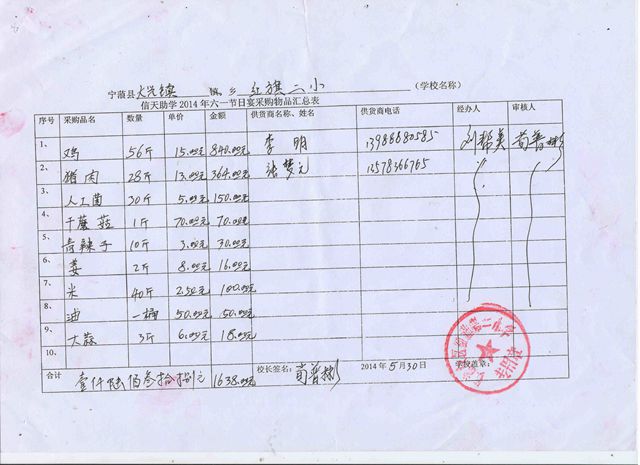 宁蒗县大兴镇 镇、乡 红旗二小 (学校名称)
信天助学2014年六一节日宴采购物品汇总表
序号 采购品名 数量 单价 金额 供货商名称、姓名 供货商电话 经办人 审核人
1、 鸡 56斤 15.00元 840.00元 李明 13986680585
2、 猪肉 28斤 13.00元 364.00元 13578366765
3、 人工菌 30斤 5.00元 150.00元
4、 干蘑菇 1斤 70.00元 70.00元
5、 青辣子 10斤 3.00元 30.00元
6、 姜 2斤 8.00元 16.00元
7、 米 40斤 2.50元 100.00元
8、 油 一桶 50.00元 50.00元
9、 大蒜 3斤 6.00元 18.00元
10、
合计 壹仟陆佰叁拾捌元 1638.00元 校长签名: 2014年5月30日 学校盖章: